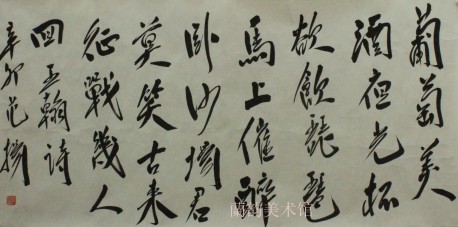 葡萄美
酒夜光杯
欲飲琵琶
馬上催醉
卧沙場君
莫笑古来
征戰幾人
回王翰詩
辛卯范
美术馆